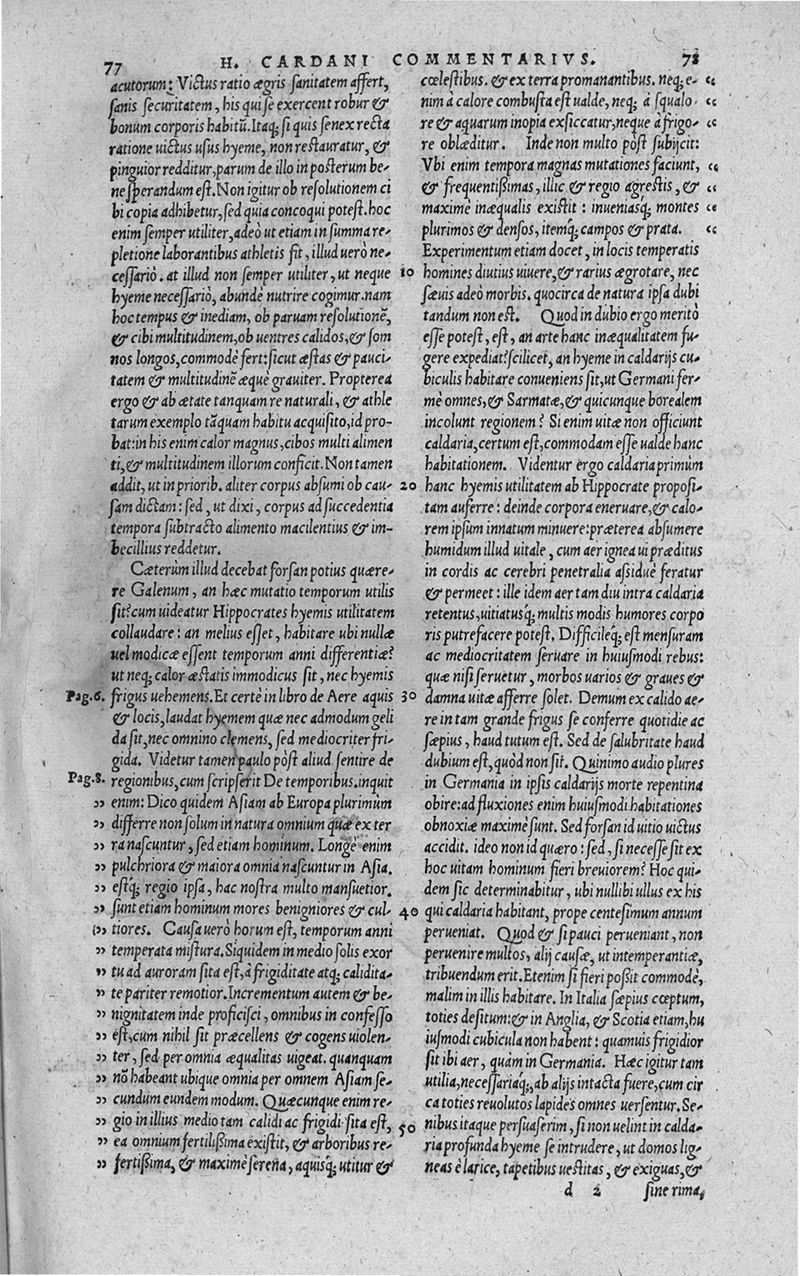 77 H. CARDANI COMMENTARIVS. 78
acutorum: Victus ratio ægris sanitatem affert,
sanis securitatem, his qui se exercent robur &
bonum corporis habitũ. Itaq; si quis senex recta
ratione uictus usus hyeme, non restauratur, &
pinguior redditur, parum de illo in posterum be-
ne sperandum est. Non igitur ob resolutionem ci
bi copia adhibetur, sed quia concoqui potest. hoc
enim semper utiliter, adeò ut etiam in summa re-
pletione laborantibus athletis sit, illud uerò ne-
cessariò. at illud non semper utiliter, ut neque
hyeme necessariò, abundè nutrire cogimur. nam
hoc tempus & inediam, ob paruam resolutionẽ,
& cibi multitudinem, ob uentres calidos, & som
nos longos, commodè fert: sicut æstas & pauci-
tatem & multitudinẽ æquè grauiter. Propterea
ergo & ab ætate tanquam re naturali, & athle
tarum exemplo tãquam habitu acquisito, id pro-
bat: in his enim calor magnus, cibos multi alimen
ti, & multitudinem illorum conficit. Non tamen
addit, ut in priorib. aliter corpus absumi ob cau-
sam dictam: sed, ut dixi, corpus ad succedentia
tempora subtracto alimento macilentius & im-
becillius reddetur.
Cæterùm illud decebat forsan potius quære-
re Galenum, an hæc mutatio temporum utilis
sit? cum uideatur Hippocrates hyemis utilitatem
collaudare: an melius esset, habitare ubi nullæ
uel modicæ essent temporum anni differentiæ?
ut neq; calor æstatis immodicus sit, nec hyemis
Pag.6. frigus uehemens. Et certè in libro de Aere aquis
& locis, laudat hyemem quæ nec admodum geli
da sit, nec omnino clemens, sed mediocriter fri-
gida. Videtur tamen paulo pòst aliud sentire de
Pag.8. regionibus, cum scripserit De temporibus. inquit
„ enim: Dico quidem Asiam ab Europa plurimùm
„ differre non solum in natura omnium quæ ex ter
„ ra nascuntur, sed etiam hominum. Longè enim
„ pulchriora & maiora omnia nascuntur in Asia.
„ estq; regio ipsa, hac nostra multo mansuetior.
„ sunt etiam hominum mores benigniores & cul-
„ tiores. Causa uerò horum est, temporum anni
„ temperata mistura. Siquidem in medio solis exor
„ tu ad auroram sita est, à frigiditate atq; calidita-
„ te pariter remotior. Incrementum autem & be-
„ nignitatem inde proficisci, omnibus in confesso
„ est, cum nihil sit præcellens & cogens uiolen-
„ ter, sed per omnia æqualitas uigeat. quanquam
„ nõ habeant ubique omnia per omnem Asiam se-
„ cundum eundem modum. Quæcunque enim re-
„ gio in illius medio tam calidi ac frigidi sita est,
„ ea omnium fertilissima existit, & arboribus re-
„ fertissima, & maximè serena, aquisq; utitur &
cœlestibus. & ex terra promanantibus. neq; e- „
nim à calore combusta est ualde, neq; à squalo „
re & aquarum inopia exsiccatur, neque à frigo- „
re oblæditur. Inde non multo pòst subijcit:
Vbi enim tempora magnas mutationes faciunt, „
& frequentissimas, illic & regio agrestis, & „
maximè inæqualis existit: inueniasq; montes „
plurimos & densos, itemq; campos & prata. „
Experimentum etiam docet, in locis temperatis
10 homines diutius uiuere, & rarius ægrotare, nec
sæuis adeò morbis. quocirca de natura ipsa dubi
tandum non est. Quod in dubio ergo meritò
esse potest, est, an arte hanc inæqualitatem fu-
gere expediat? scilicet, an hyeme in caldarijs cu-
biculis habitare conueniens sit, ut Germani fer-
mè omnes, & Sarmatæ, & quicunque borealem
incolunt regionem? Si enim uitæ non officiunt
caldaria, certum est, commodam esse ualde hanc
habitationem. Videntur ergo caldaria primùm
20 hanc hyemis utilitatem ab Hippocrate proposi-
tam auferre: deinde corpora eneruare, & calo-
rem ipsum innatum minuere: præterea absumere
humidum illud uitale, cum aer ignea ui præditus
in cordis ac cerebri penetralia assiduè feratur
& permeet: ille idem aer tam diu intra caldaria
retentus, uitiatusq; multis modis humores corpo
ris putrefacere potest. Difficileq; est mensuram
ac mediocritatem seruare in huiusmodi rebus:
quæ nisi seruetur, morbos uarios & graues &
30 damna uitæ afferre solet. Demum ex calido ae-
re in tam grande frigus se conferre quotidie ac
sæpius, haud tutum est. Sed de salubritate haud
dubium est, quòd non sit. Quinimo audio plures
in Germania in ipsis caldarijs morte repentina
obire: ad fluxiones enim huiusmodi habitationes
obnoxiæ maximè sunt. Sed forsan id uitio uictus
accidit. ideo non id quæro: sed, si necesse sit ex
hoc uitam hominum fieri breuiorem? Hoc qui-
dem sic determinabitur, ubi nullibi ullus ex his
40 qui caldaria habitant, prope centesimum annum
perueniat. Quod & si pauci perueniant, non
peruenire multos, alij causæ, ut intemperantiæ,
tribuendum erit. Etenim si fieri possit commodè,
malim in illis habitare. In Italia sæpius cœptum,
toties desitum: & in Anglia, & Scotia etiam, hu
iusmodi cubicula non habent: quamuis frigidior
sit ibi aer, quàm in Germania. Hæc igitur tam
utilia, necessariaq;, ab alijs intacta fuere, cum cir
ca toties reuolutos lapides omnes uersentur. Se-
50 nibus itaque persuaserim, si non uelint in calda-
ria profunda hyeme se intrudere, ut domos lig-
neas è larice, tapetibus uestitas, & exiguas, &
d 2 sine rima,